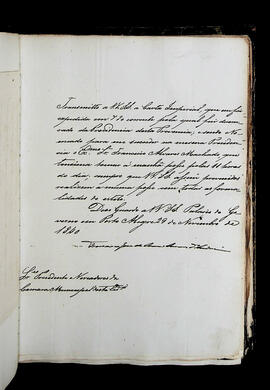 Transmitto a VV. SSas. a Carta Imperial, que me foi
expedida em 7 do corrente pela qual fui dispen
sado da Presidencia desta Provincia, sendo No
meado para me succeder na mesma Presiden
cia o Exmo. Sr. Francisco Alvares Machado, que
tenciona tomar a manhã posse pelas 11 horas
do dia, cumpre que VV. SSas. assim prevenidos
realizem a mesma posse com todas as forma
lidades do estilo.
Deos Guarde a VV. SSas. Palacio do Go
verno em Porto Alegre 29 de Novembro de
1840
Snres. Presidente e Vereadores da
Camara Municipal desta Cide.